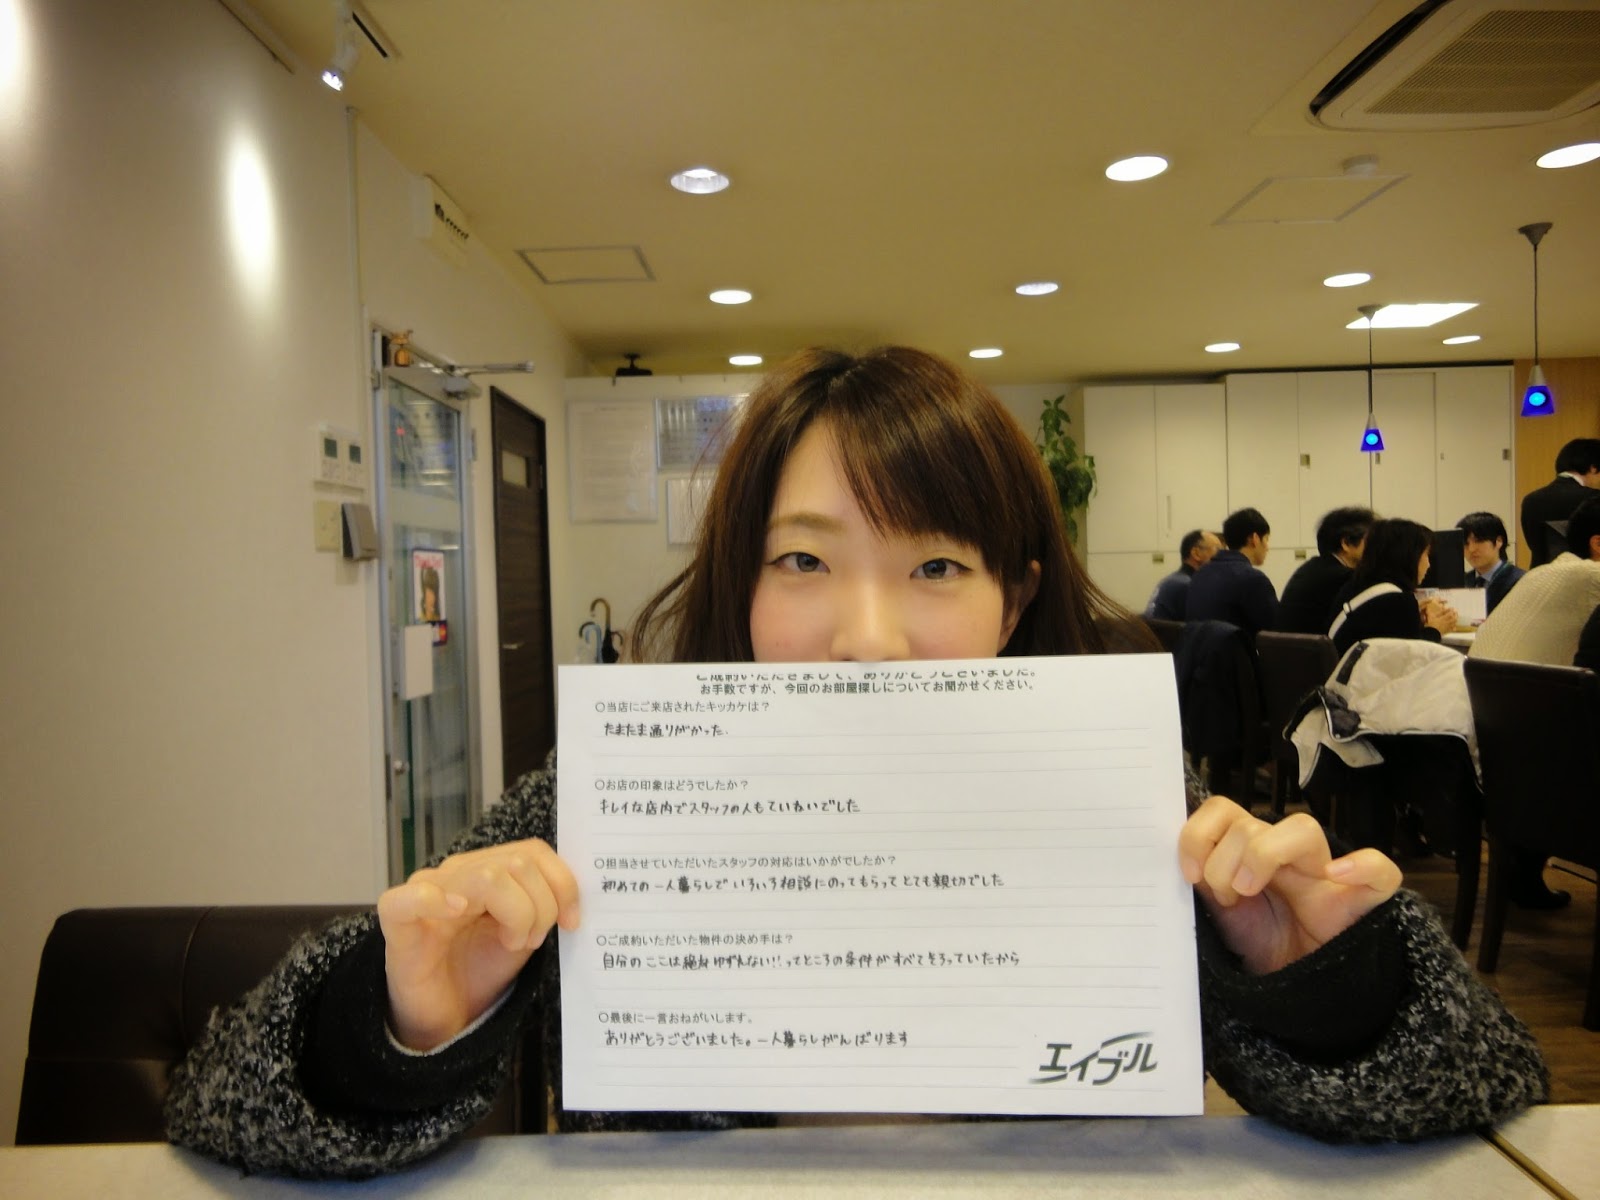 ご成約いただきまして、ありがとうございました。
お手数ですが、今回のお部屋探しについてお聞かせください。
〇当店にご来店されたキッカケは？
たまたま通りがかった.
〇お店の印象はどうでしたか？
キレイな店内でスタッフの人もていねいでした
〇担当させていただいたスタッフの対応はいかがでしたか？
初めての一人暮らしでいろいろ相談にのってもらってとても親切でした
〇ご成約いただいた物件の決め手は？
自分のここは絶対ゆずれない!!ってところの条件がすべてそろっていたから
〇最後に一言おねがいします。
ありがとうございました。一人暮らしがんばります
エイブル